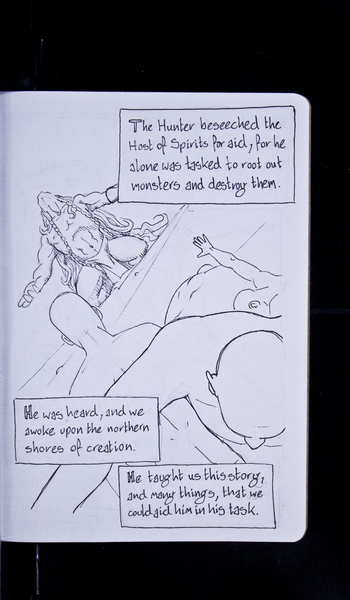 The Hunter beseeched the
Host of Spirits for aid, for he
alone was tasked to root out
monsters and destroy them.
He was heard, and we
awoke upon the northern
shores of creation.
He taught us this story,
and many things, that we
could aid him in his task.